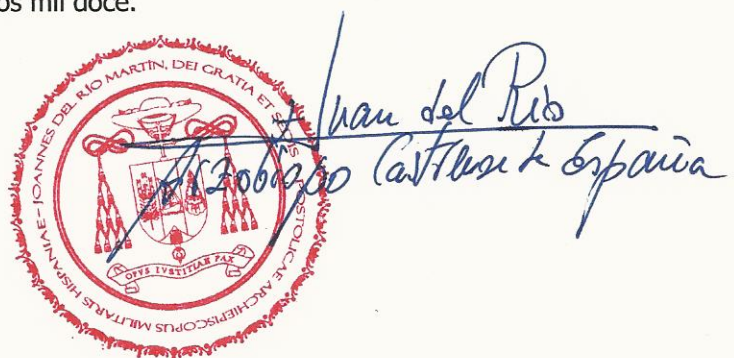 os mil doce.
JOANNES DEL RÍO MARTÍN, DEI GRATIA ET SEDIS APOSTOLICAE ARCHIEPISCOPUS MILITARIS HISPANIAE -
OPVS IVSTITIAE PAX
+ Juan del Río
Arzobispo Castrense de España